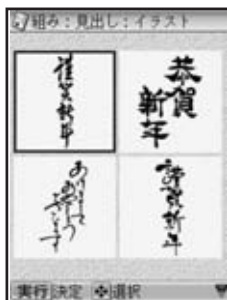 組み:見出し:イラスト
謹賀新年
恭賀
新年
あけまして
おめでとう
ございます
謹賀新年
実行 決定 選択